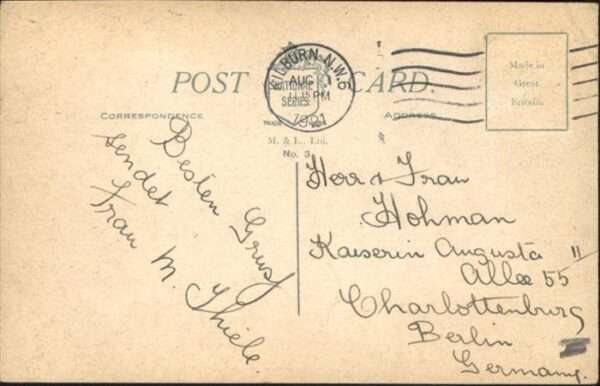 KILBURN. N.W.6
AUG 1
11.15 PM
1921
POST CARD.
NATIONAL
SERIES
CORRESPONDENCE
TRADE MARK
ADDRESS
M. & L., Ltd.
No. 3
Made in
Great
Britain.
Besten Gruß
sendet
Frau M. Thiele.
Herr & Frau
Hohman
Kaiserin Augusta
Allee 55 II
Charlottenburg
Berlin
Germany.